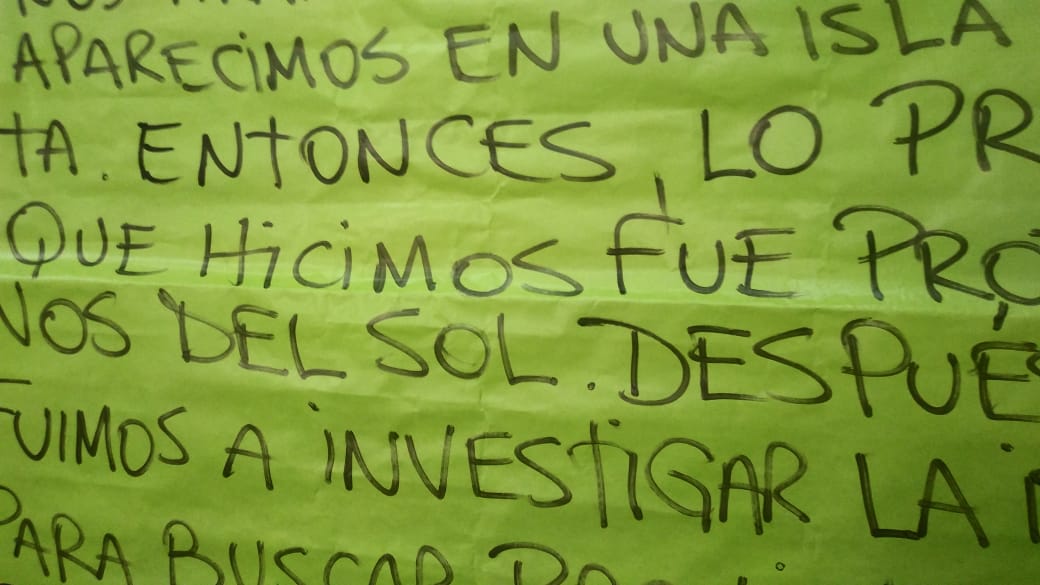 APARECIMOS EN UNA ISLA
TA. ENTONCES, LO PR
QUE HICIMOS FUE PRO
NOS DEL SOL. DESPUÉS
FUIMOS A INVESTIGAR LA
PARA BUSCAR